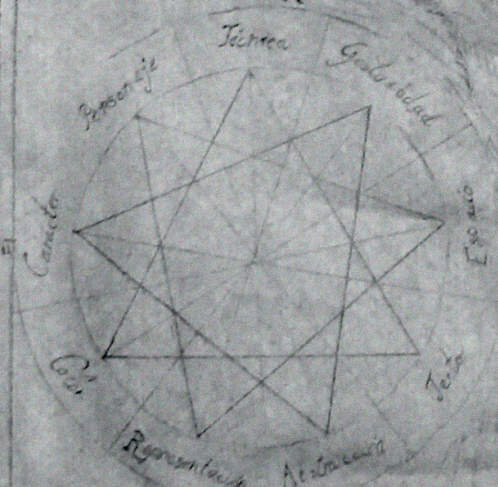 Técnica
Gestualidad
Espacio
Texto
Abstracción
Representación
Color
Caracter
Personaje
El